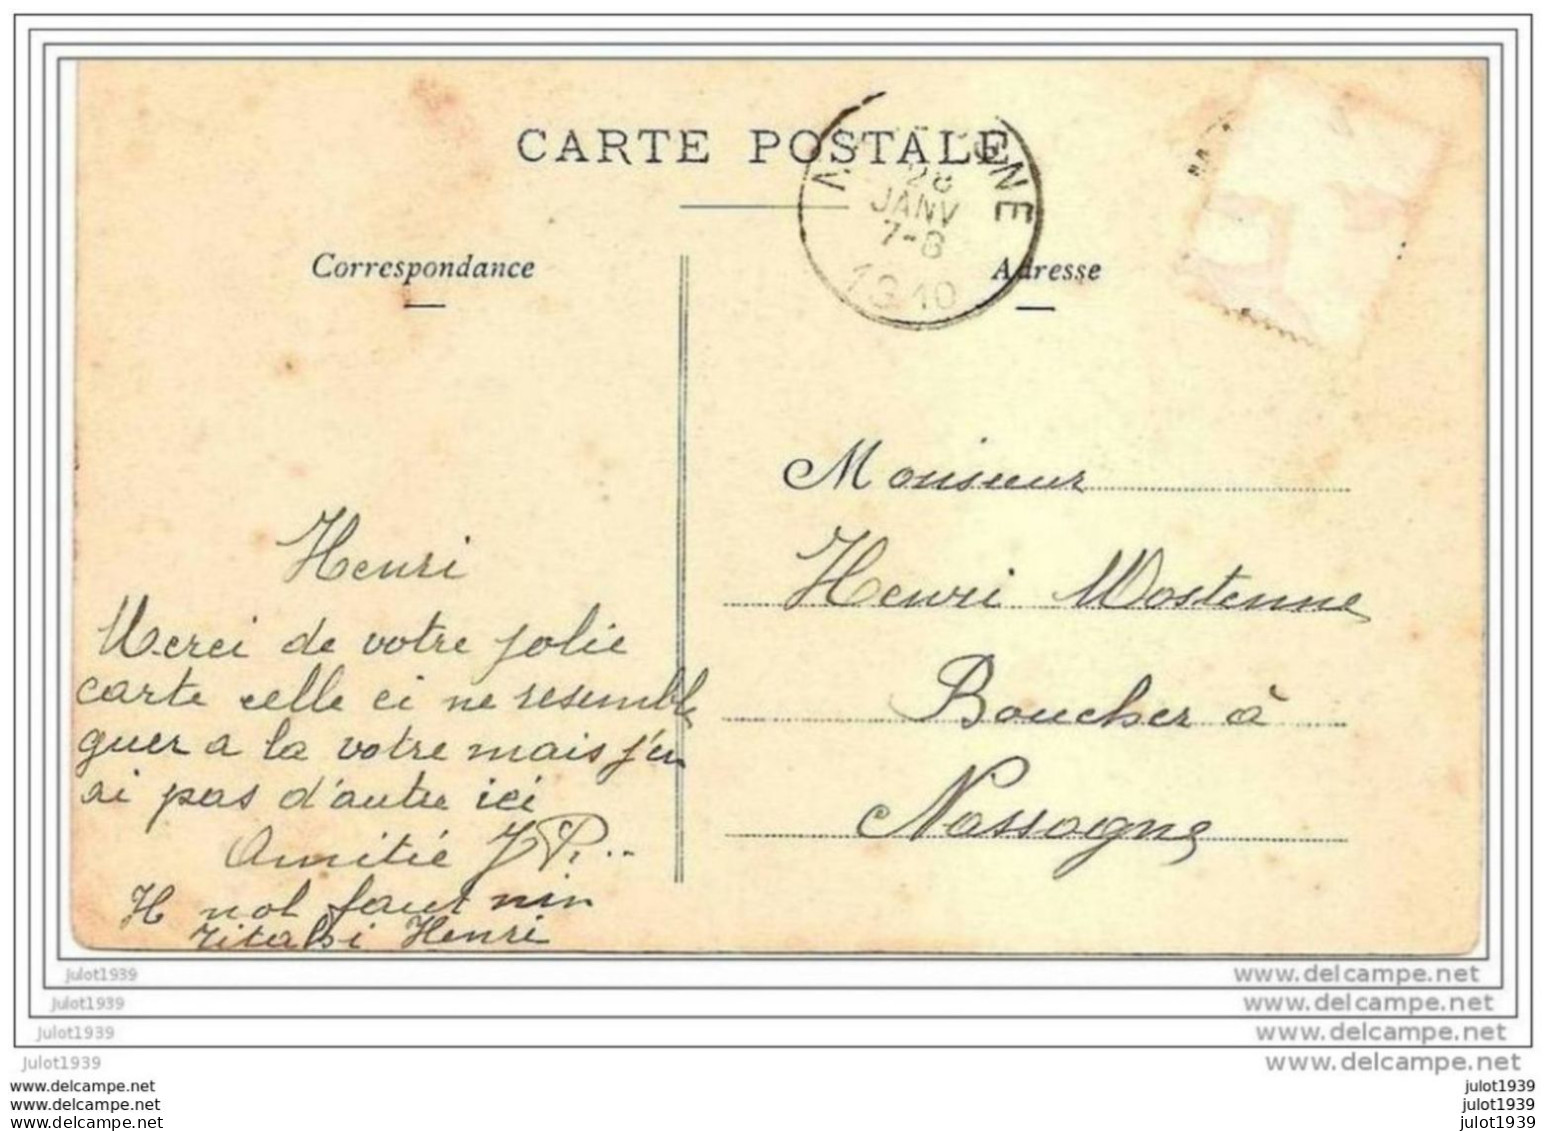 CARTE POSTALE
28
JANV
7-8
1910
Correspondance
Adresse
Henri
Merci de votre jolie
carte celle ci ne resemble
guer a la votre mais j'en
ai pas d'autre ici
Amitié J P...
H nol faut nin
Henri
Monsieur
Henri Wostenne
Boucher à
Nassogne
julot1939 www.delcampe.net
julot1939 www.delcampe.net
julot1939 www.delcampe.net
julot1939 www.delcampe.net
www.delcampe.net julot1939
www.delcampe.net julot1939
www.delcampe.net julot1939